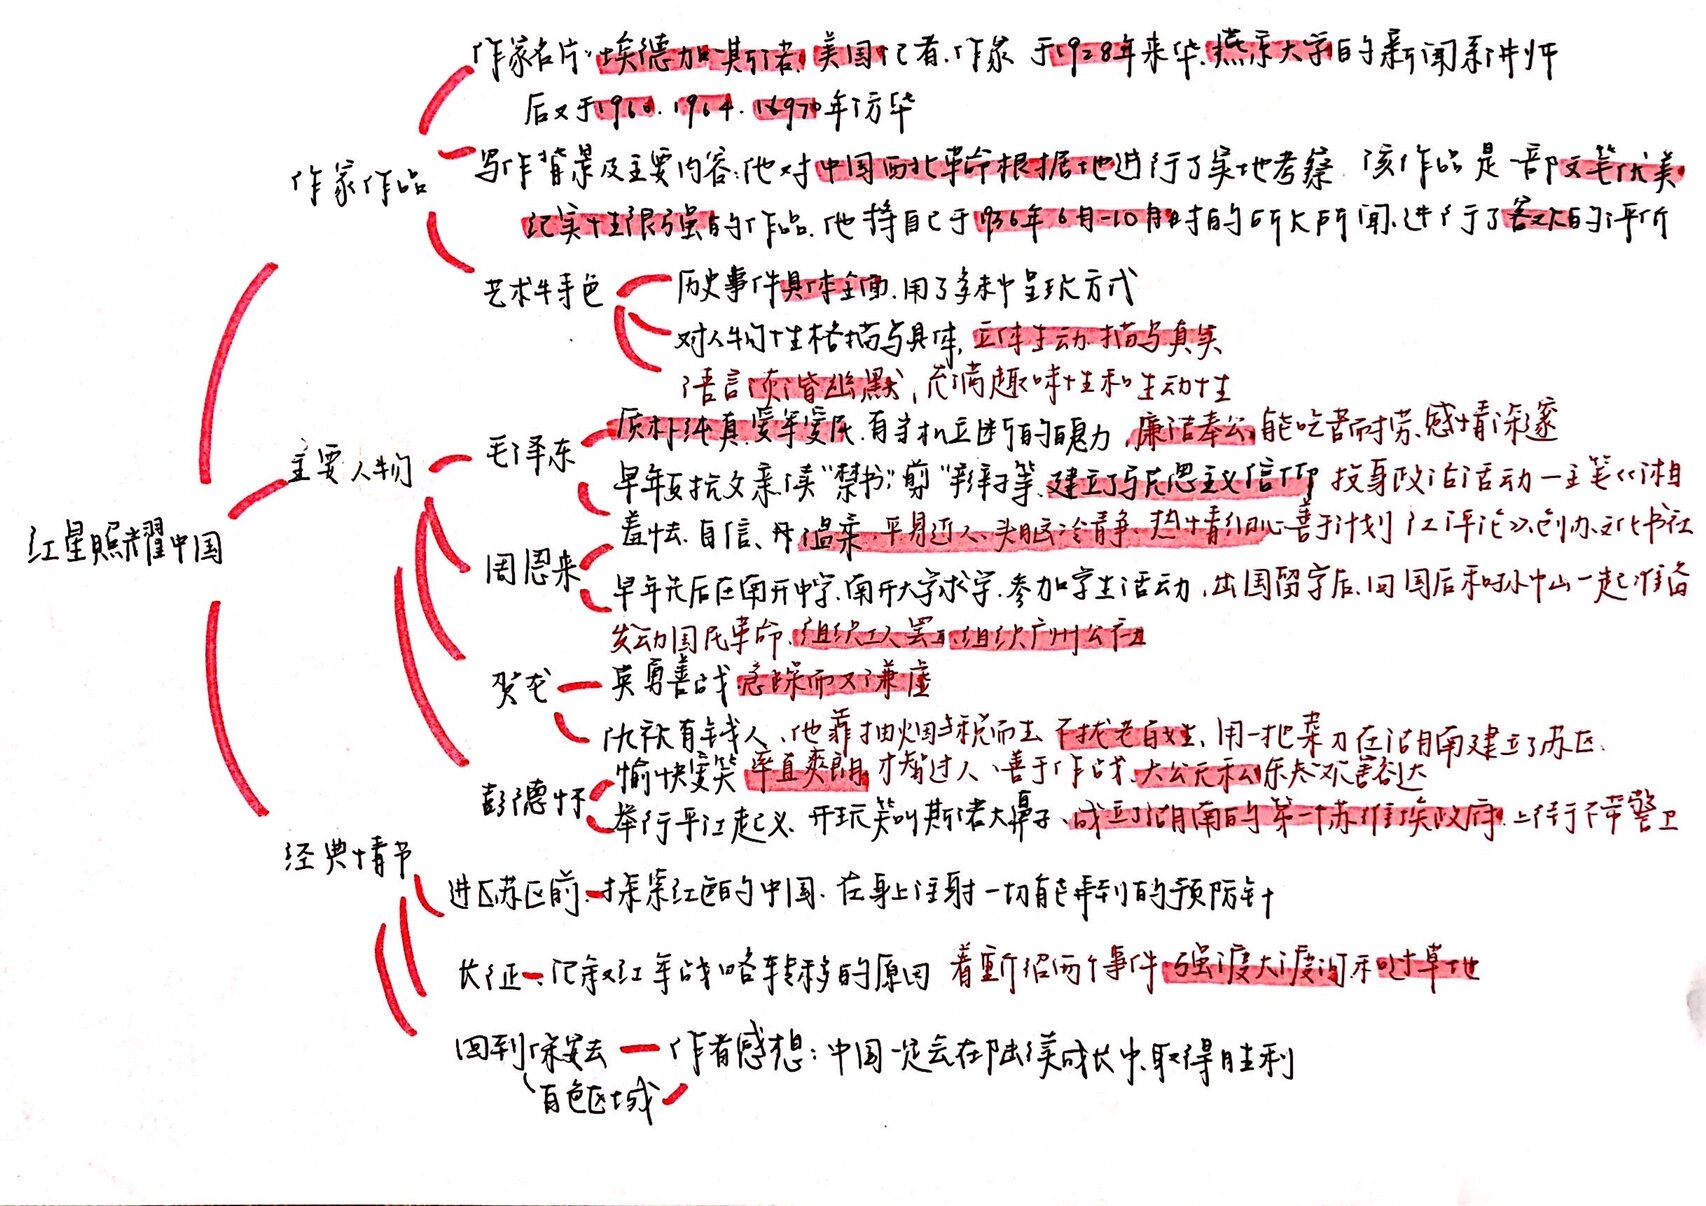 作家名片:埃德加·斯诺,美国记者.作家 于1928年来华.燕京大学的新闻系讲师
后又于1960.1964.1970年访华
作家作品
写作背景及主要内容:他对中国西北革命根据地进行了实地考察 该作品是一部文笔优美
纪实性很强的作品.他将自己于1936年6月-10月时的所见所闻,进行了客观的评价
艺术特色
历史事件具体全面.用了多种呈现方式
对人物性格描写具体,立体生动.描写真实
语言诙谐幽默,充满趣味性和生动性
主要人物
毛泽东
质朴纯真.爱军爱民.有当机立断的魄力,廉洁奉公,能吃苦耐劳.感情深邃
早年反抗父亲.读“禁书”,剪“辫子”等.建立了马克思主义信仰 投身政治活动一主笔《湘
羞怯.自信、温柔.平易近人.头脑冷静.热情细心.善于计划 江评论》.创办文化书社
周恩来
早年先后在南开中学.南开大学求学.参加学生活动,出国留学后.回国后和孙中山一起准备
发动国民革命.组织工人罢工.组织广州公社
贺龙
英勇善战.急躁而又谦虚
仇视有钱人、他靠抽烟与税而去 不扰老百姓、用一把菜刀在湖南建立了苏区.
彭德怀
愉快爱笑 率直爽朗 才智过人、善于作战、大公无私
举行平江起义.开玩笑叫斯诺大鼻子、成立湖南的第一个苏维埃政府.上街不带警卫
红星照耀中国
经典情节
进区苏区前-探索红色的中国.在身上注射一切能弄到的预防针
长征-记叙红军战略转移的原因 着重介绍两个事件:强渡大渡河和过草地
回到保安去-作者感想:中国一定会在陆续成长中.取得胜利
白色区域